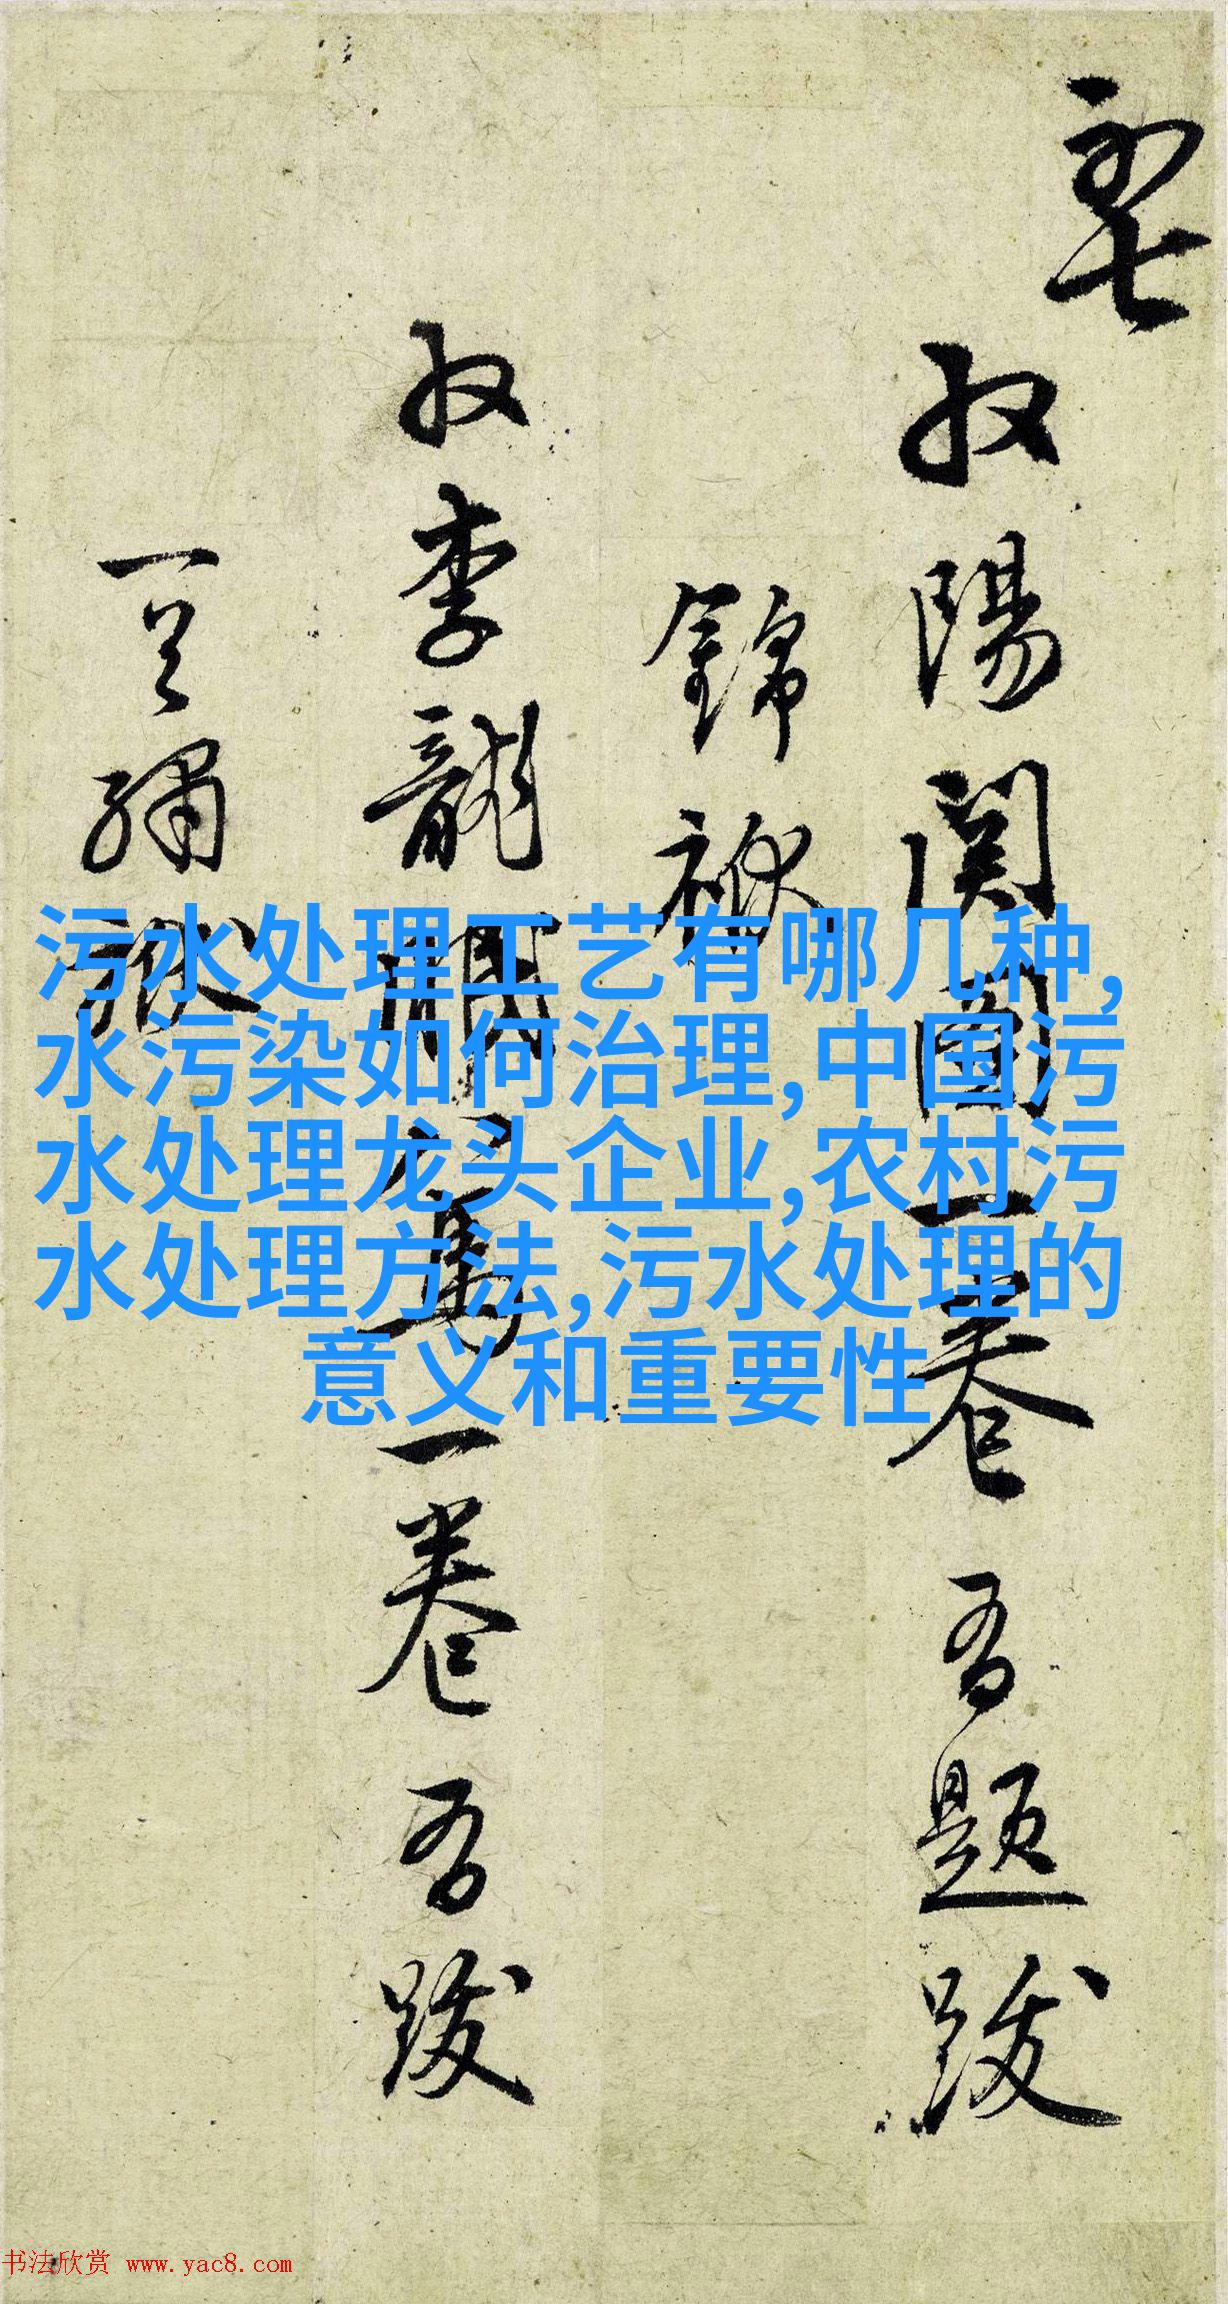 収陽関圖一卷 吾題跋
錦褫
収李龍眠
一卷 吾跋
污水处理工艺有哪几种,
水污染如何治理,中国污
水处理龙头企业,农村污
水处理方法,污水处理的
意义和重要性
书法欣赏 www.yac8.com